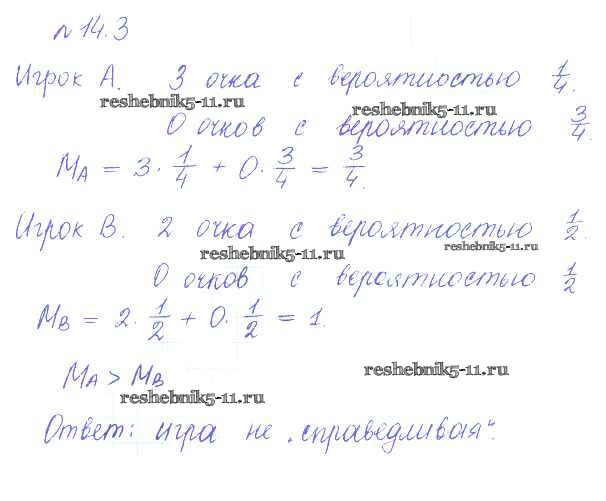 №14.3
Игрок А. 3 очка с вероятностью 1/4.
reshebnik5-11.ru reshebnik5-11.ru
0 очков с вероятностью 3/4.
M_A = 3 · 1/4 + 0 · 3/4 = 3/4.
Игрок В. 2 очка с вероятностью 1/2.
reshebnik5-11.ru reshebnik5-11.ru
0 очков с вероятностью 1/2
M_B = 2 · 1/2 + 0 · 1/2 = 1.
M_A > M_B
reshebnik5-11.ru
reshebnik5-11.ru
Ответ: игра не „справедливая“.